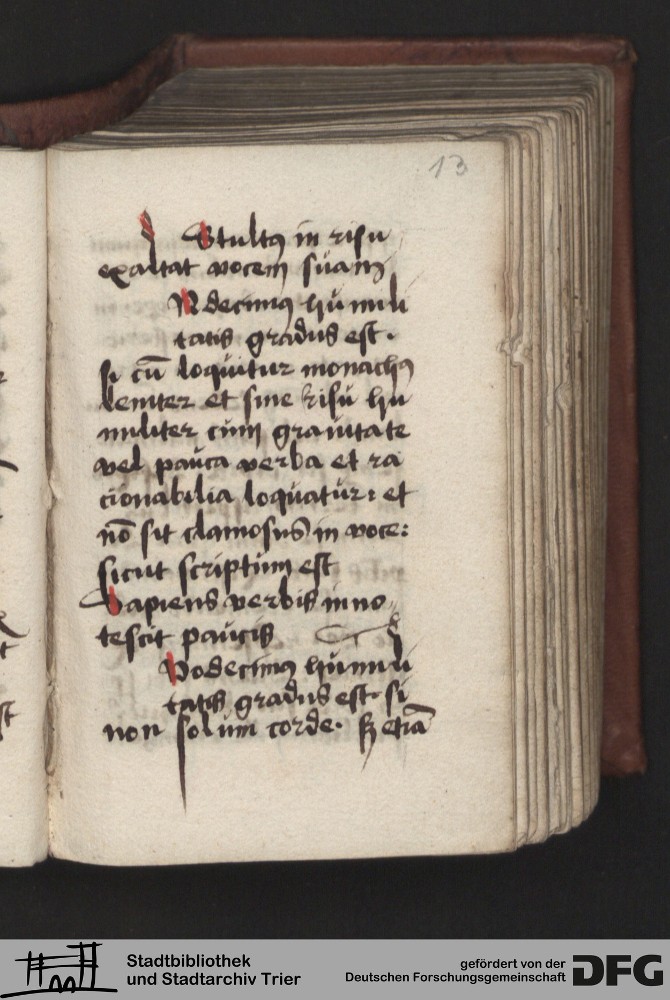 13
Stultꝰ in risu
exaltat vocem suam
Vndecimꝰ humili
tatis gradus est.
si cū loquitur monachꝰ
leniter et sine risu hu
militer cum grauitate
vel pauca verba et ra
cionabilia loquatur: et
nō sit clamosus in voce:
sicut scriptum est
Sapiens verbis inno
tescit paucis
Duodecimꝰ humili
tatis gradus est. si
non solum corde. sꝫ etiā
Stadtbibliothek
und Stadtarchiv Trier
gefördert von der
Deutschen Forschungsgemeinschaft
DFG